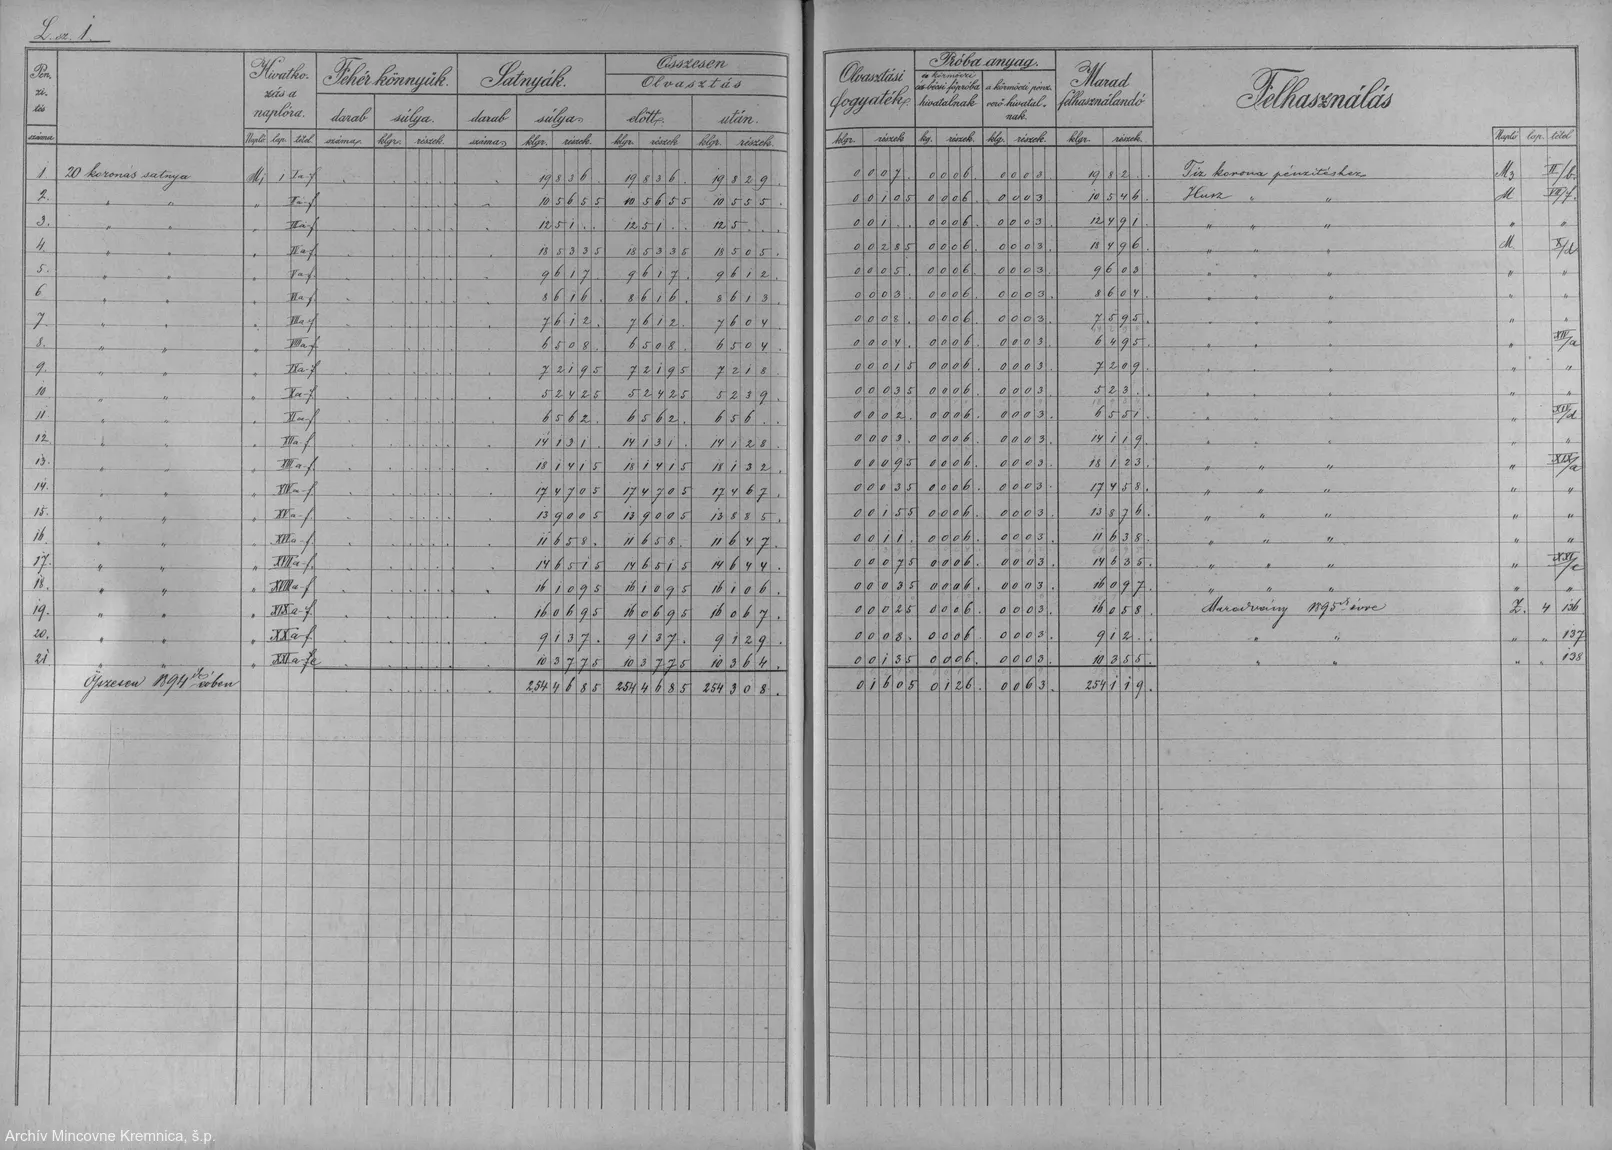 L. sz. 1.
Pénzítés száma
Hivatkozás a naplóra.
Napló lap. tétel
Fehér könnyük.
darab száma
súlya.
klgr. részek.
Satnyák.
darab száma
súlya
klgr. részek.
Összesen
Olvasztás
előtt
klgr. részek
után.
klgr. részek.
Olvasztási fogyaték
klgr. részek
Próba anyag.
hivatalnak
kg. részek.
a körmöczi pénzverő hivatalnak.
klg. részek.
Marad felhasználandó
klgr. részek.
Felhasználás
Napló lap. tétel
1 20 koronás satnya M1 1 Ia-f 19 836 19 836 19 829 0 007 0 006 0 003 19 82 Tíz korona pénzítéshez M3 II/b.
2. " " " IIa-f 10 5655 10 5655 10 555 0 0105 0 006 0 003 10 546 Husz " " M VII/f.
3. " " " IIIa-f 12 51 12 51 12 5 0 01 0 006 0 003 12 491 " " " " "
4. " " " IVa-f 18 5335 18 5335 18 505 0 0285 0 006 0 003 18 496 " " " M X/d
5. " " " Va-f 9 617 9 617 9 612 0 005 0 006 0 003 9 603 " " " " "
6 " " " VIa-f 8 616 8 616 8 613 0 003 0 006 0 003 8 604 " " " " "
7. " " " VIIa-f 7 612 7 612 7 604 0 008 0 006 0 003 7 595 " " " " "
8. " " " VIIIa-f 6 508 6 508 6 504 0 004 0 006 0 003 6 495 " " " " XIV/a
9. " " " IXa-f 7 2195 7 2195 7 218 0 0015 0 006 0 003 7 209 " " " " "
10 " " " Xa-f 5 2425 5 2425 5 239 0 0035 0 006 0 003 5 23 " " " " "
11 " " " XIa-f 6 562 6 562 6 56 0 002 0 006 0 003 6 551 " " " "
12. " " " XIIa-f 14 131 14 131 14 128 0 003 0 006 0 003 14 119 " " " " "
13. " " " XIIIa-f 18 1415 18 1415 18 132 0 0095 0 006 0 003 18 123 " " " " XIX/a
14. " " " XIVa-f 17 4705 17 4705 17 467 0 0035 0 006 0 003 17 458 " " " " "
15. " " " XVa-f 13 9005 13 9005 13 885 0 0155 0 006 0 003 13 876 " " " " "
16 " " " XVIa-f 11 658 11 658 11 647 0 011 0 006 0 003 11 638 " " " " "
17. " " " XVIIa-f 14 6515 14 6515 14 644 0 0075 0 006 0 003 14 635 " " " "
18. " " " XVIIIa-f 16 1095 16 1095 16 106 0 0035 0 006 0 003 16 097 " " " " "
19. " " " XIXa-f 16 0695 16 0695 16 067 0 0025 0 006 0 003 16 058 Maradvány 1895 évre Z. 4 136
20. " " " XXa-f 9 137 9 137 9 129 0 008 0 006 0 003 9 12 " " " " 137
21 " " " XXIa-fc 10 3775 10 3775 10 364 0 0135 0 006 0 003 10 355 " " " " 138
Öszesen 1894 évben 254 4685 254 4685 254 308 0 1605 0 126 0 063 254 119
Archív Mincovne Kremnica, š.p.